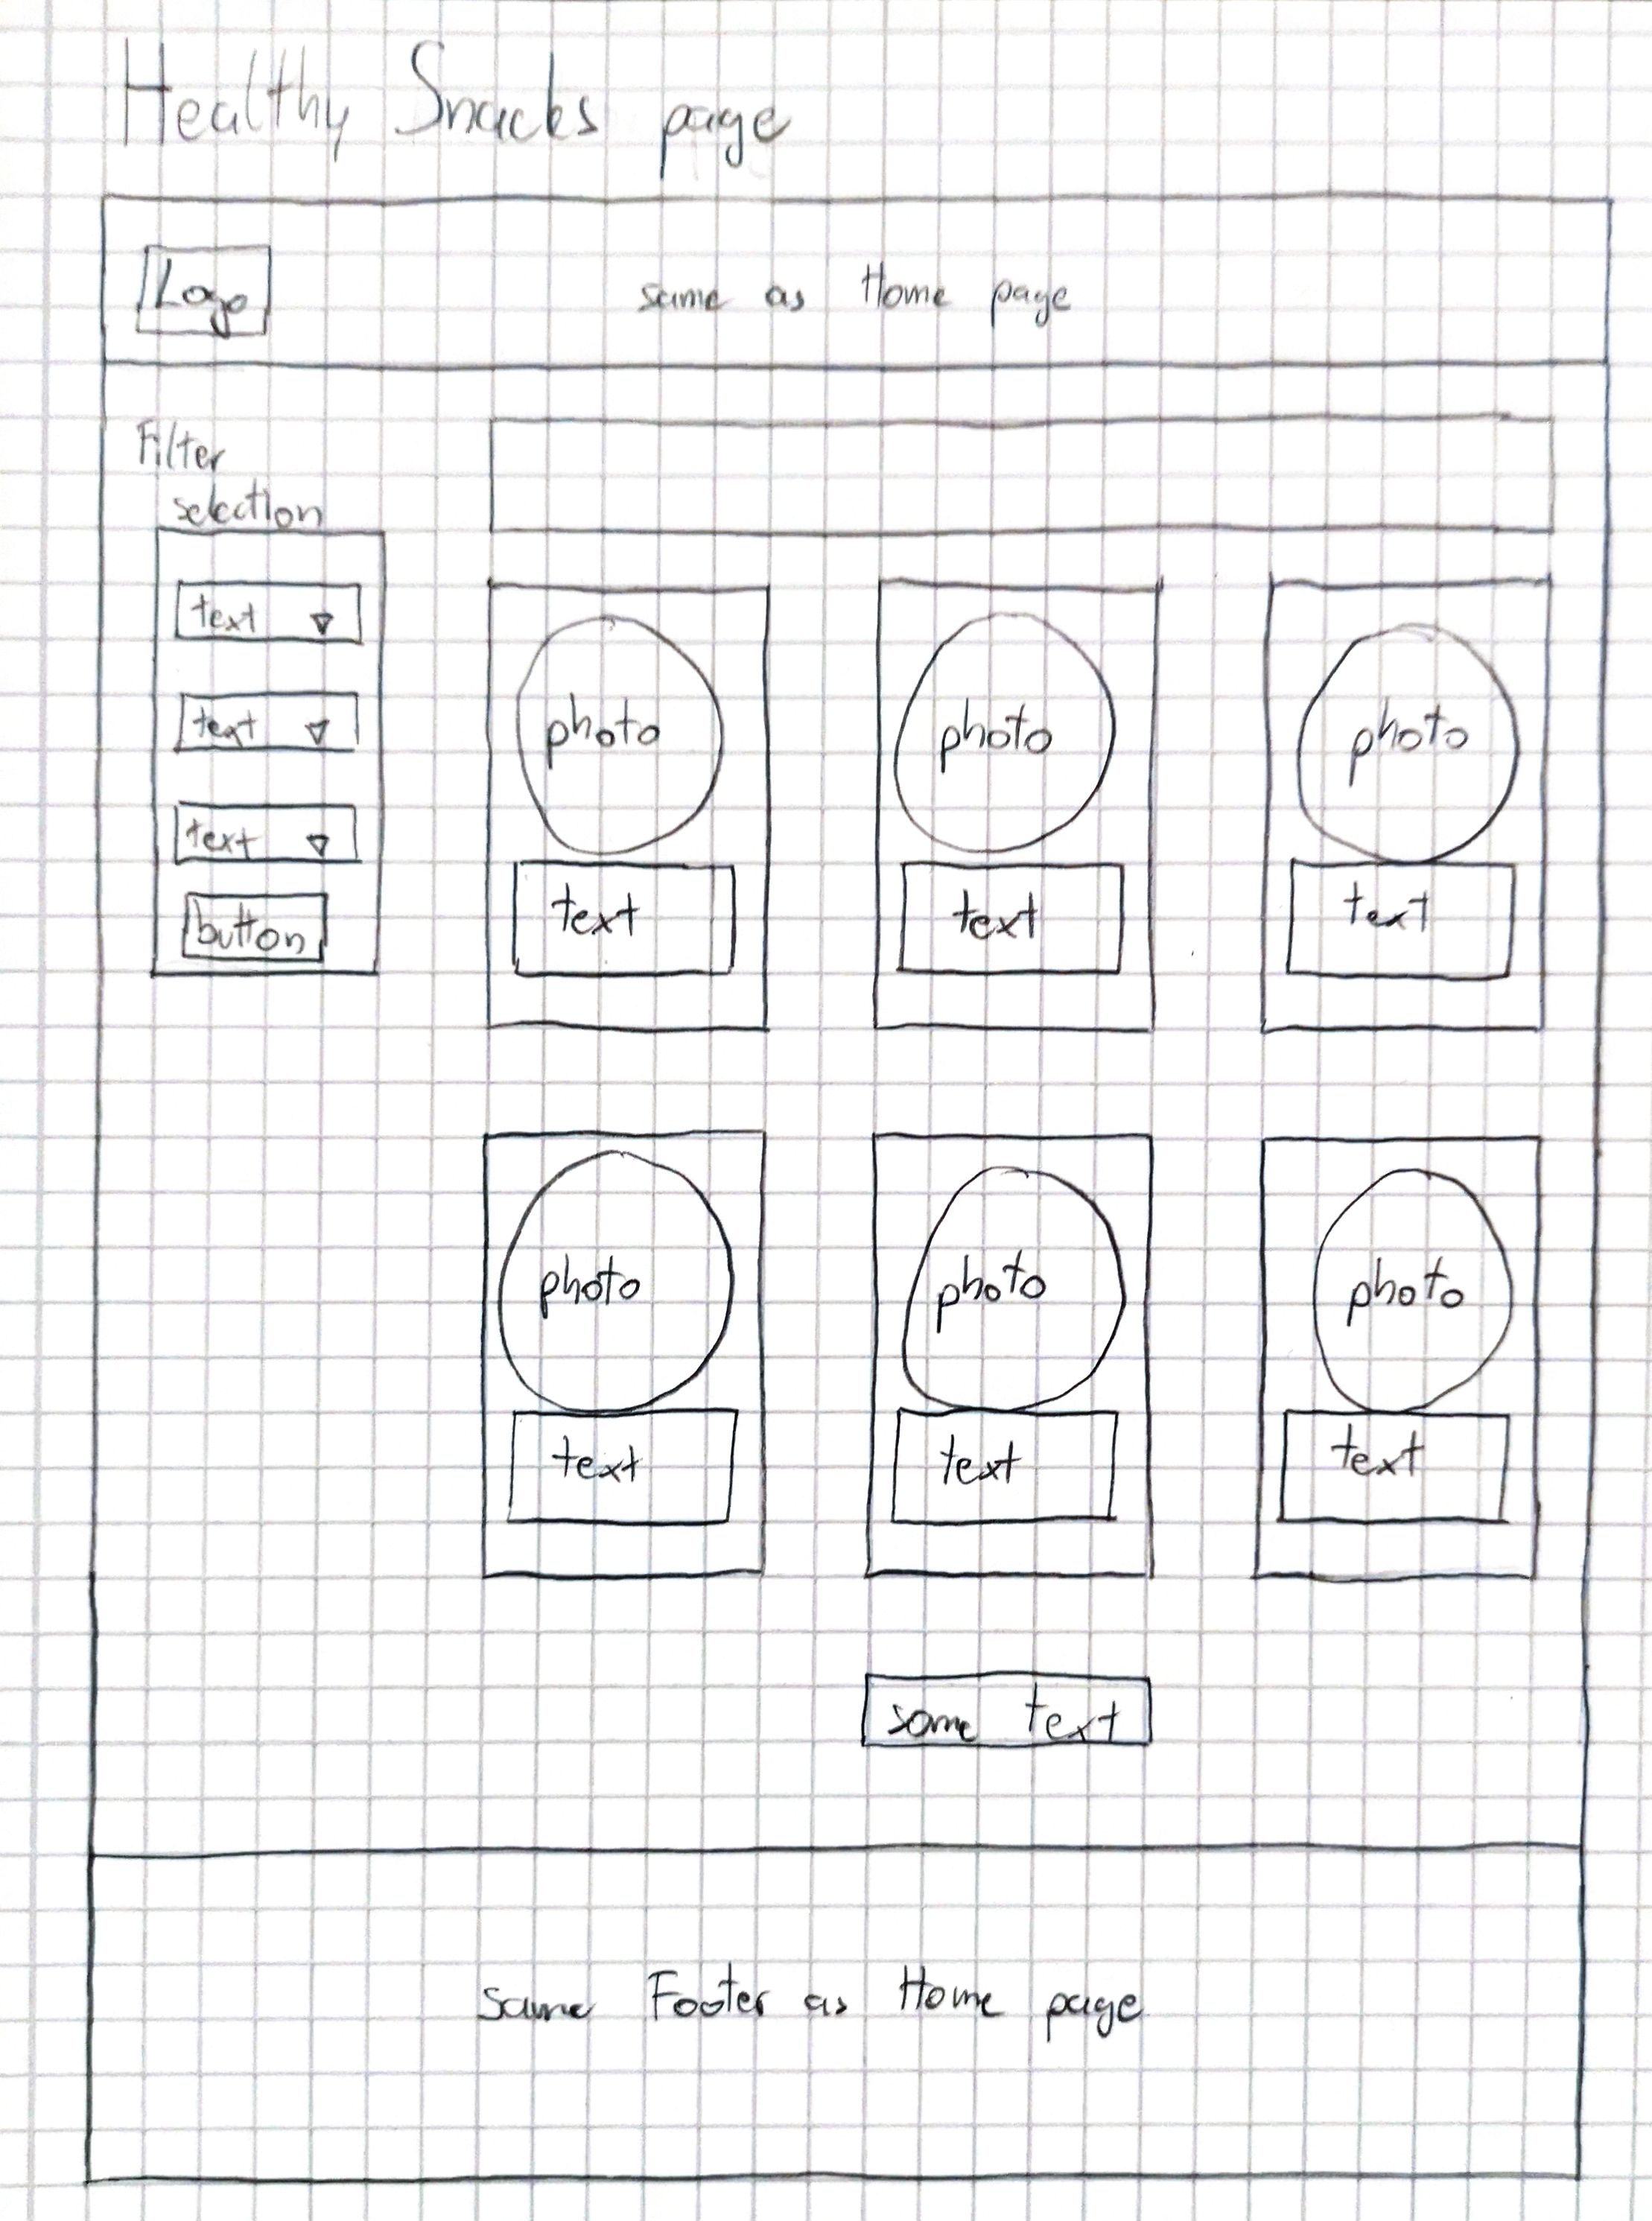 Healthy Snacks page
Logo
same as Home page
Filter
selection
text
text
text
button
photo photo photo
text text text
photo photo photo
text text text
some text
same Footer as Home page